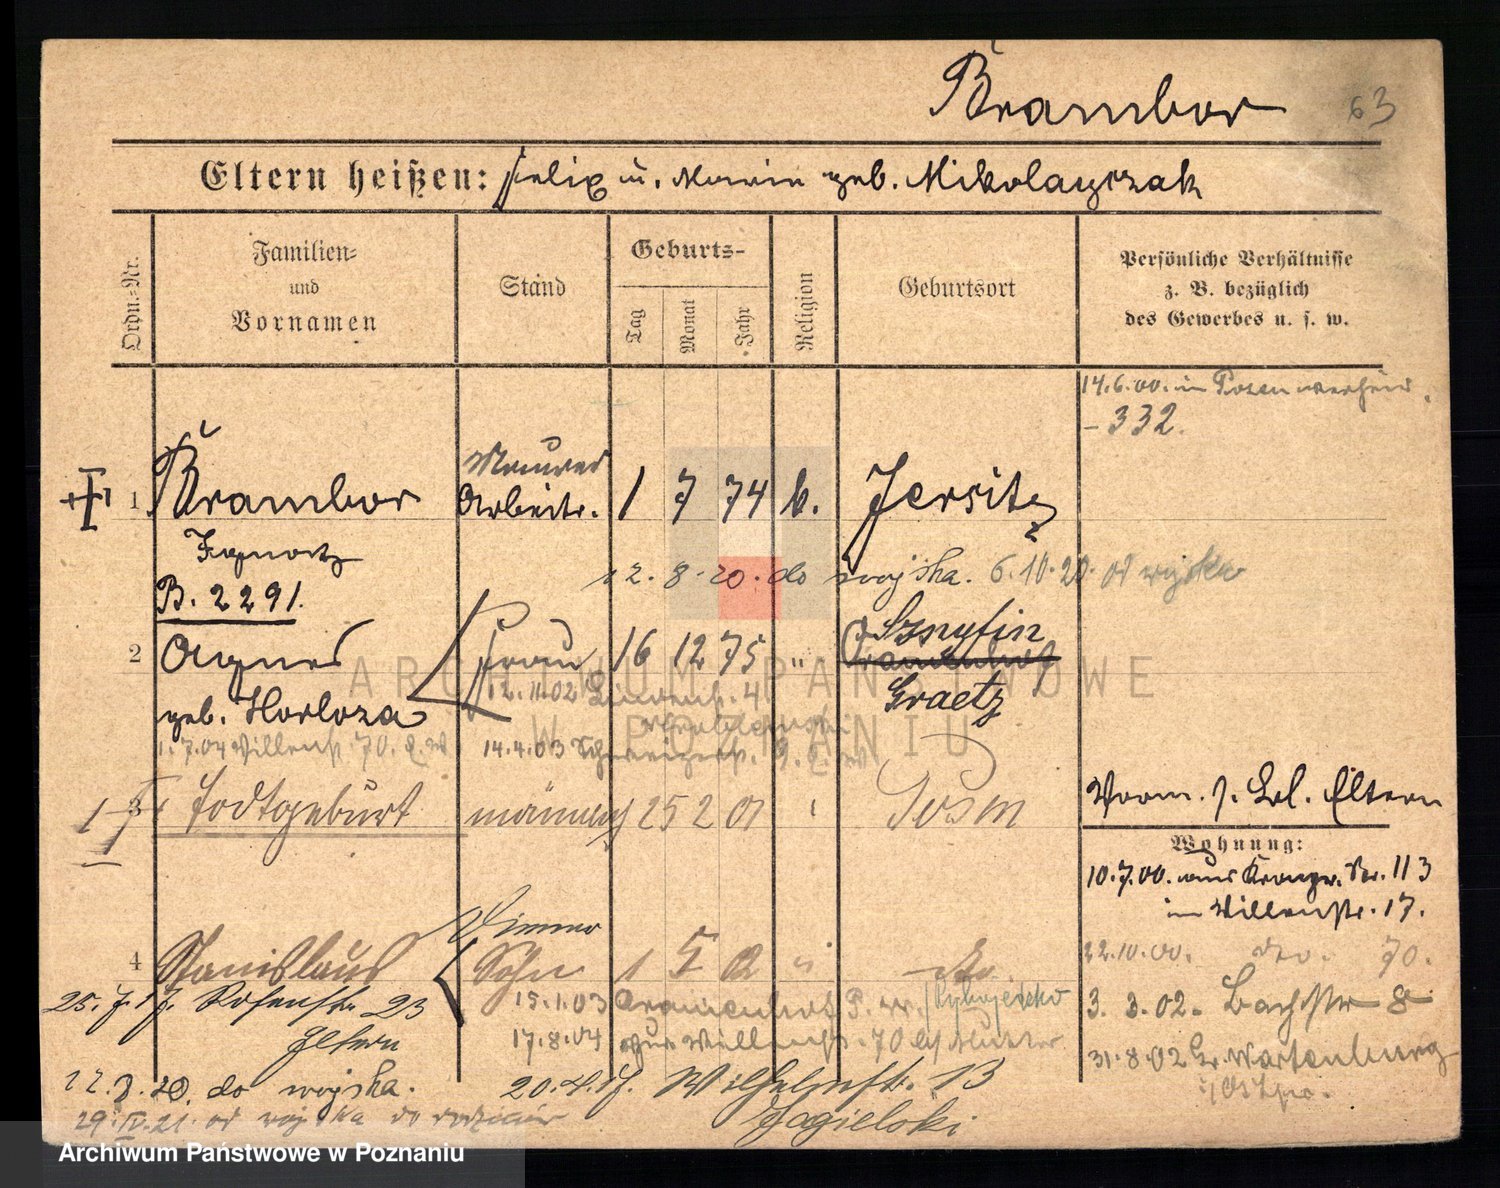 Brambor
63
Eltern heißen: Felix u. Marie geb. Mikolayczak
Ordn.-Nr.
Familien-
und
Vornamen
Stand
Geburts-
Tag
Monat
Jahr
Religion
Geburtsort
Persönliche Verhältnisse
z. B. bezüglich
des Gewerbes u. s. w.
14.6.00. in Posen verheir.
- 332.
Maurer
1 Brambor Arbeitr. 1 7 74 k. Jersitz
Ignatz
12.8.20. do wojska. 6.10.20. od wojska
B. 2291.
Sznyfin
2 Agnes Frau 16 12 75 "
geb. Horloza
Graetz
12.11.02
1.7.04 Villenstr. 70.
14.4.03
3 Todtgeburt männlich 25 2 01 Posen
Vorm. s. Eltern
Wohnung:
10.7.00. aus Kronpr. Str. 113
in Villenstr. 17.
4 Stanislaus Sohn 1 5 02
22.10.00. do. 70.
25.7.17. Rosenstr. 23
Eltern
15.1.03
3. 3.02. Bachstr 8
17.8.04 zur Villenstr. 70
31.8.02 Gr. Wartenburg
Ostpr.
12.8.20. do wojska.
20.4.17. Wilhelmstr. 13
Jagielski
29.IV.21. od wojska do rodziców
ARCHIWUM PAŃSTWOWE
W POZNANIU
Archiwum Państwowe w Poznaniu